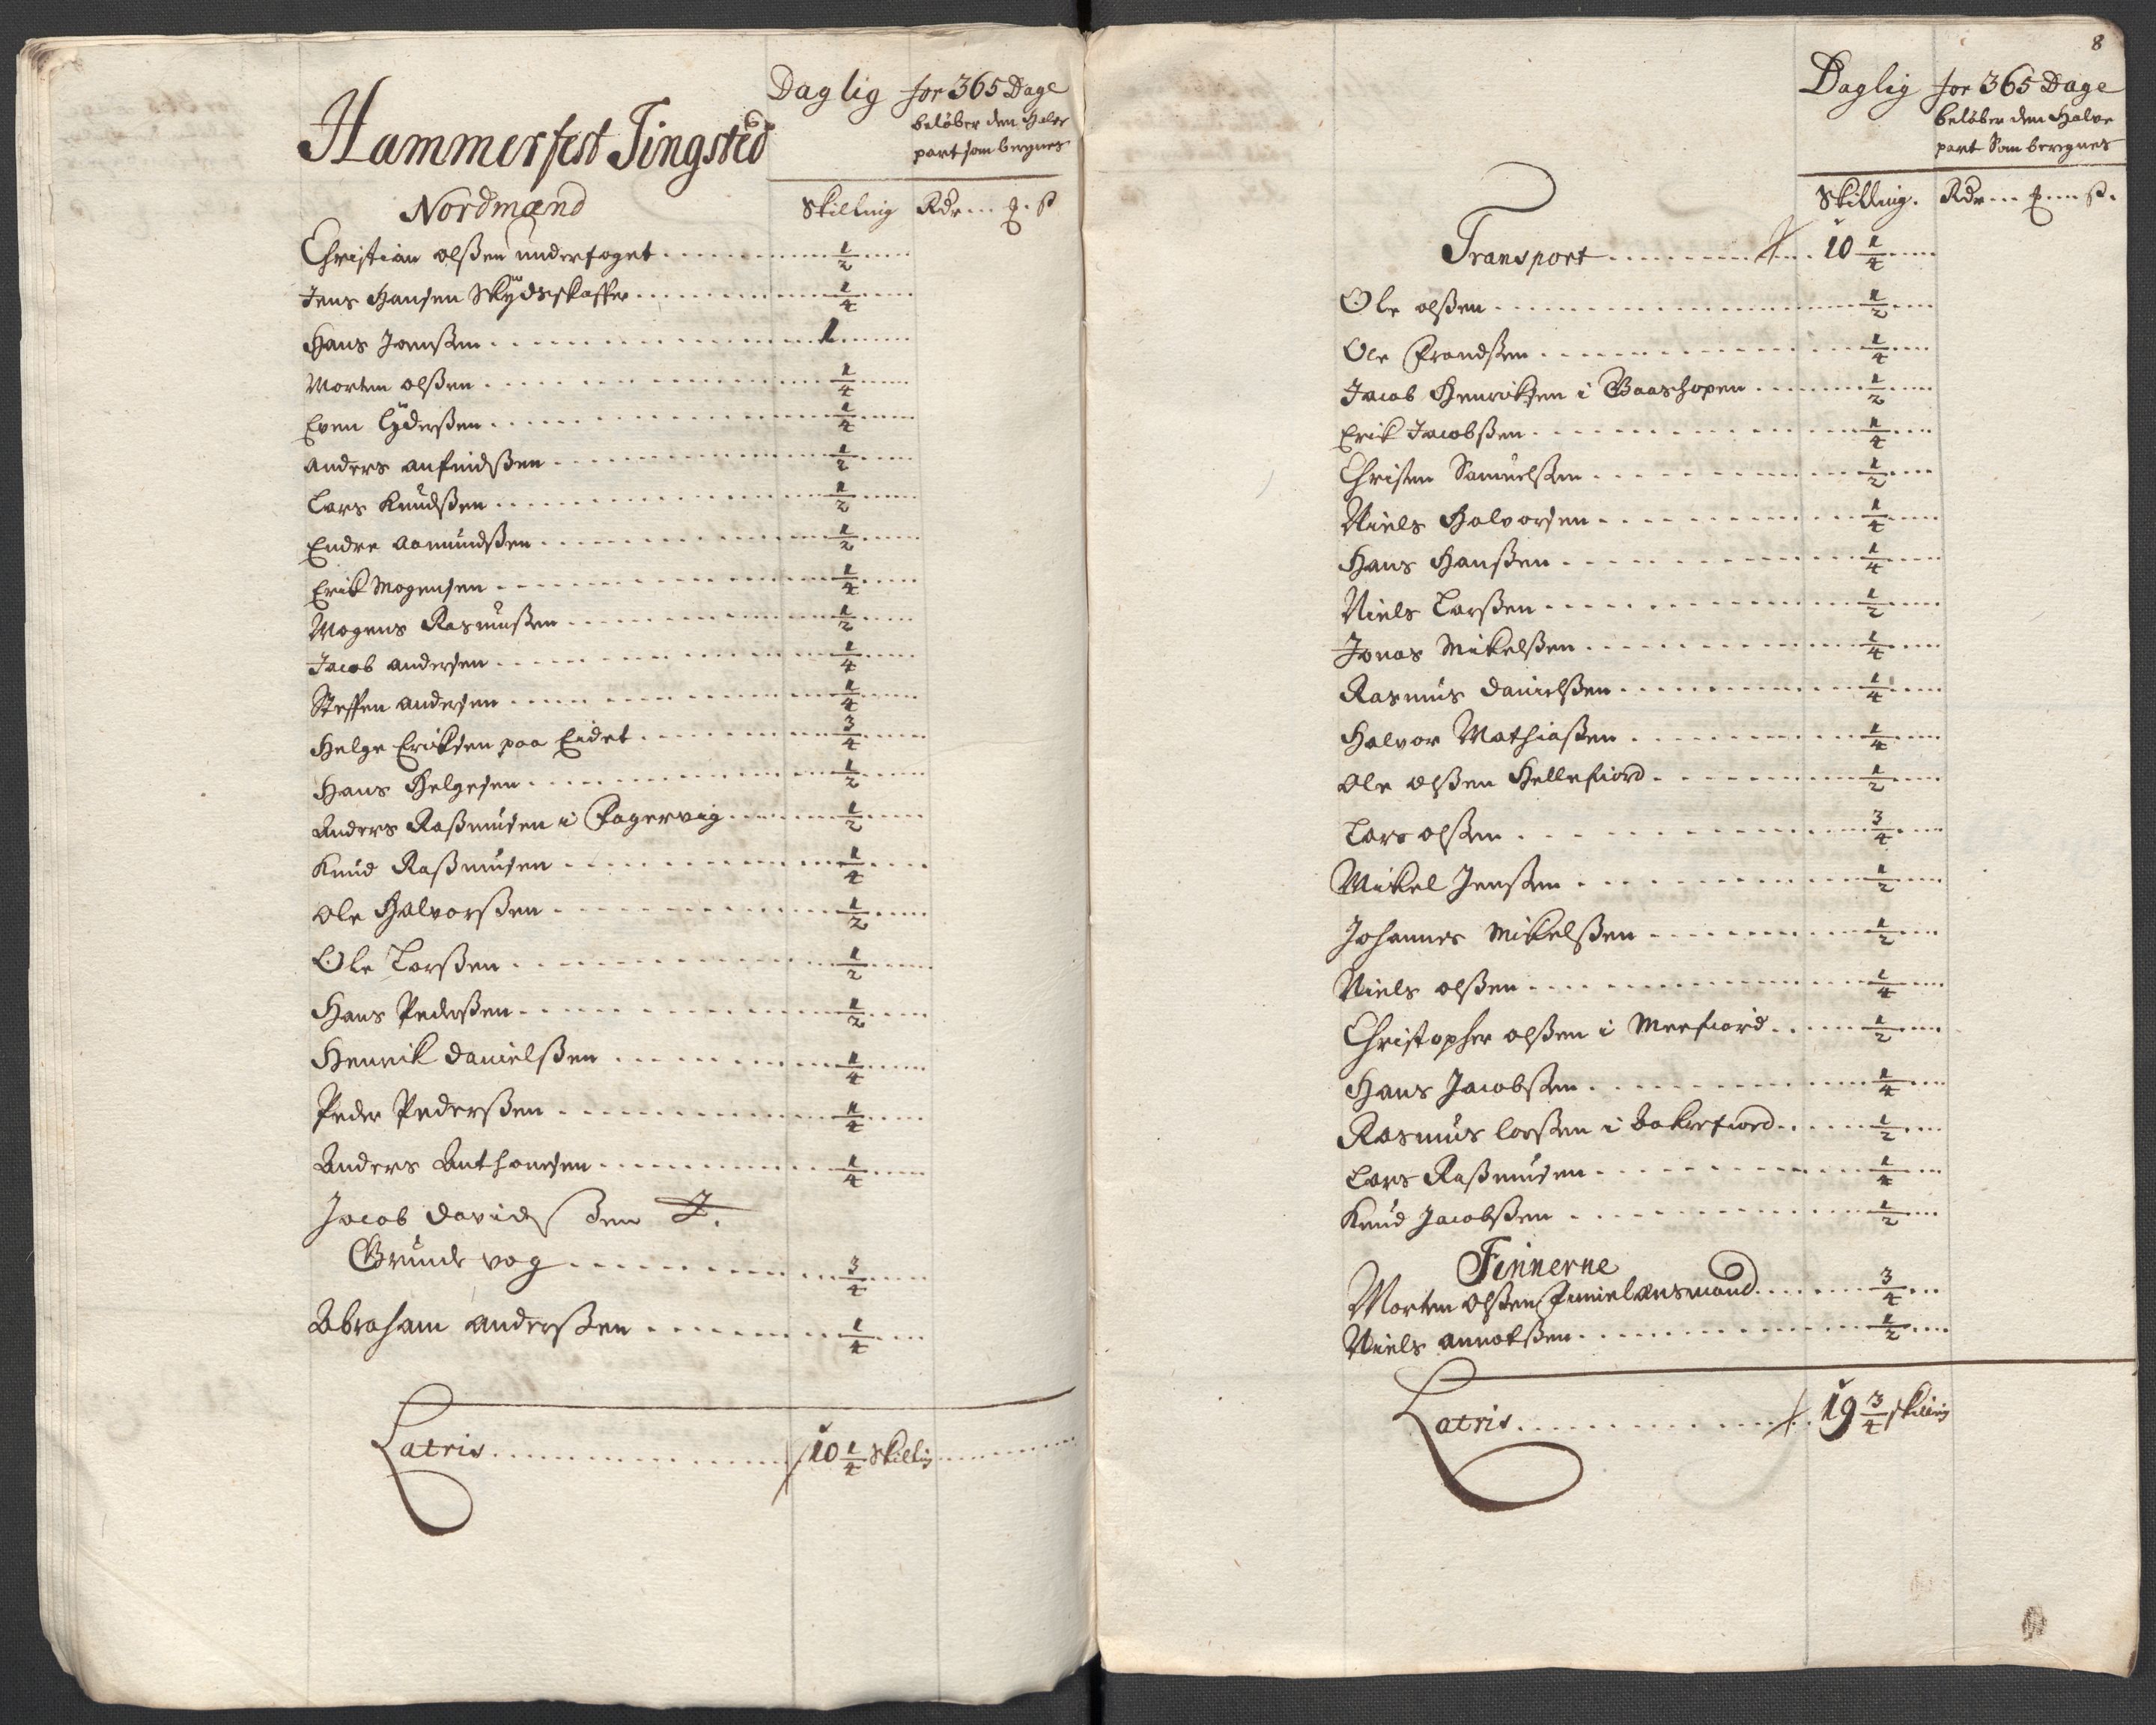 Daglig for 365 Dage
beløber den Halve
part som beregnes
Hammerfest Tingsted
Nordmænd
Skilling Rdr ...
Christian olßen underfoget ... 1/2
Jens Hansen Skydsskaffer ... 1/4
Hans Joenßen ... 1
Morten olßen ... 1/4
Even Lyderßen ... 1/4
Anders anfindßen ... 1/2
Lars Knudßen ... 1/2
Endre Aamundßen ... 1/2
Erik Mogensen ... 1/4
Mogens Rasmußen ... 1/2
Jacob andersen ... 1/4
Steffen andersen ... 1/4
Helge Eriksen paa Eidet ... 3/4
Hans Helgesen ... 1/2
Anders Raßmusen i Fagervig ... 1/2
Knud Raßmusen ... 1/4
Ole Halvorßen ... 1/2
Ole Larßen ... 1/2
Hans Pederßen ... 1/2
Henrik Danielßen ... 1/4
Peder Pederßen ... 1/4
Anders Anthonisen ... 1/4
Jacob Davidßen
Grunde vog ... 3/4
Abraham anderßen ... 1/4
Latris ... 10 1/4 Skilling
8
Daglig for 365 Dage
beløber den Halve
part Som beregnes
Skilling. Rdr ...
Transport ... 10 1/4
Ole olßen ... 1/2
Ole Frandßen ... 1/4
Jacob Henriksen i Baashopen ... 1/2
Erik Jacobßen ... 1/4
Christen Samuelßen ... 1/2
Niels Halvorsen ... 1/4
Hans Hanßen ... 1/4
Niels Larßen ... 1/2
Jonas Mikelßen ... 1/4
Rasmus Danielßen ... 1/4
Halvor Mathiaßen ... 1/4
Ole olßen Hellefiord ... 1/2
Lars olßen ... 3/4
Mikel Jenßen ... 1/2
Johannes Mikelßen ... 1/2
Niels olßen ... 1/4
Christopher olßen i Meefiord ... 1/2
Hans Jacobßen ... 1/4
Rasmus larßen i Bakefiord ... 1/2
Lars Raßmusen ... 1/4
Knud Jacobßen ... 1/2
Finnerne
Morten olßen Finnelænsmand ... 3/4
Niels annotßen ... 1/2
Latris ... 19 3/4 skilling